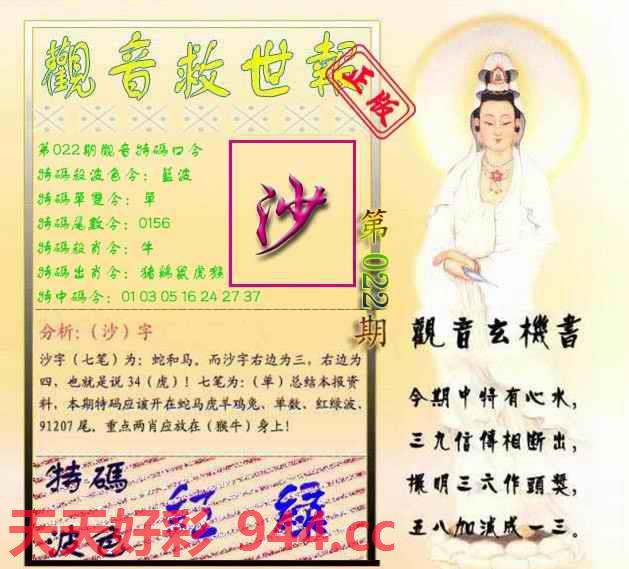 觀音救世報
正版
第022期觀音特碼口令
特碼殺波色令：藍波
特碼單雙令：單
特碼尾數令：0156
特碼殺肖令：牛
特碼出肖令：豬鷄鼠虎猴
特中碼令：01 03 05 16 24 27 37
沙
第022期
分析:（沙）字
沙字（七笔）为：蛇和马。而沙字右边为三，右边为
四，也就是说 34（虎）！七笔为:（单）总结本报资
料，本期特码应该开在蛇马虎羊鸡兔、单数、红绿波、
91207 尾，重点两肖应放在（猴牛）身上！
特碼
波色
紅 綠
觀音玄機書
今期中特有心水，
三九信傳相斷出，
擺明三六作頭獎，
五八加減成一三。
天天好彩 944.cc